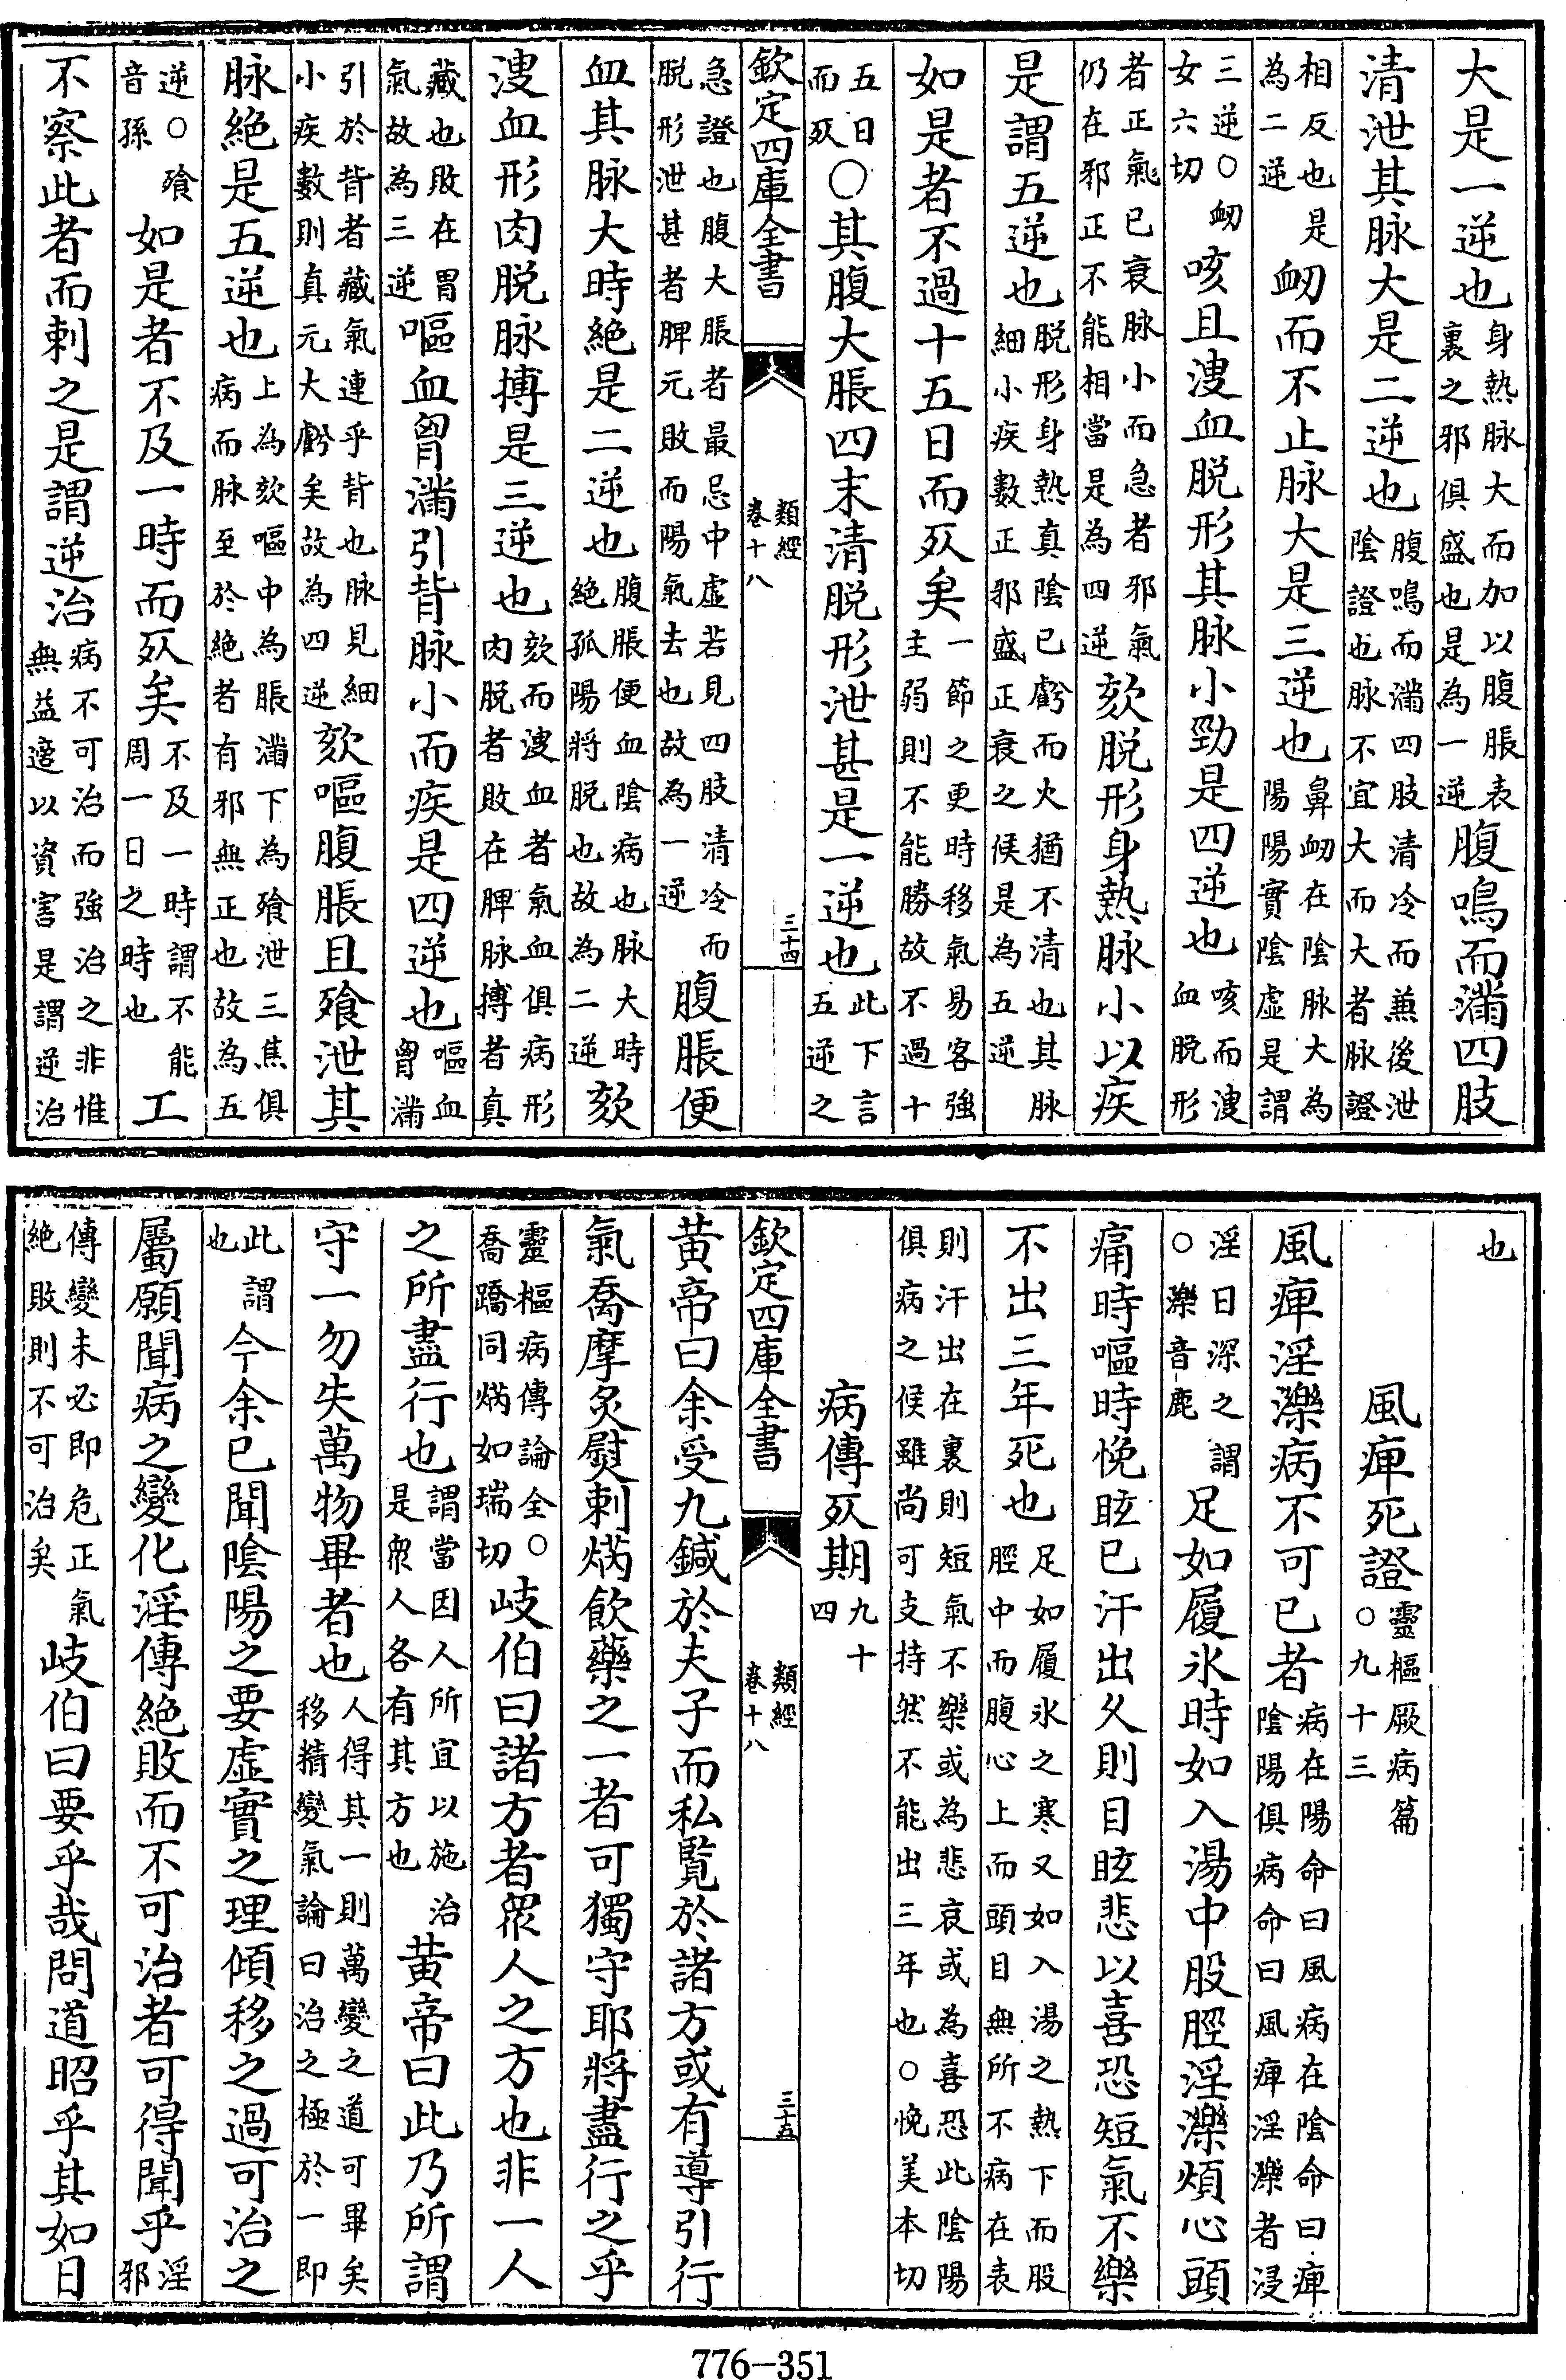 大是一逆也身熱脉大而加以腹脹表裏之邪俱盛也是為一逆腹鳴而滿四肢
清泄其脉大是二逆也腹鳴而滿四肢清冷而兼後泄陰證也脉不宜大而大者脉證
相反也是為二逆衂而不止脉大是三逆也鼻衂在陰脉大為陽陽實陰虛是謂
三逆○衂女六切咳且溲血脱形其脉小勁是四逆也咳而溲血脱形
者正氣已衰脉小而急者邪氣仍在邪正不能相當是為四逆欬脱形身熱脉小以疾
是謂五逆也脱形身熱真陰已虧而火猶不清也其脉細小疾數正邪盛正衰之候是為五逆
如是者不過十五日而死矣一節之更時移氣易客強主弱則不能勝故不過十
五日而死○其腹大脹四末清脱形泄甚是一逆也此下言五逆之
欽定四庫全書 類經卷十八 三十四
急證也腹大脹者最忌中虛若見四肢清冷而脱形泄甚者脾元敗而陽氣去也故為一逆腹脹便
血其脉大時絶是二逆也腹脹便血陰病也脉大時絶孤陽將脱也故為二逆欬
溲血形肉脱脉搏是三逆也欬而溲血者氣血俱病形肉脱者敗在脾脉搏者真
藏也敗在胃氣故為三逆嘔血胷滿引背脉小而疾是四逆也嘔血胷滿
引於背者藏氣連乎背也脉見細小疾數則真元大虧矣故為四逆欬嘔腹脹且飱泄其
脉絶是五逆也上為欬嘔中為脹滿下為飱泄三焦俱病而脉至於絶者有邪無正也故為五
逆○飱音孫如是者不及一時而死矣不及一時謂不能周一日之時也工
不察此者而刺之是謂逆治病不可治而強治之非惟無益適以資害是謂逆治
也
風痺死證靈樞厥病篇○九十三
風痺淫濼病不可已者病在陽命曰風病在陰命曰痺陰陽俱病命曰風痺淫濼者浸
淫日深之謂○濼音鹿足如履氷時如入湯中股脛淫濼煩心頭
痛時嘔時悗眩已汗出久則目眩悲以喜恐短氣不樂
不出三年死也足如履氷之寒又如入湯之熱下而股脛中而腹心上而頭目無所不病在表
則汗出在裏則短氣不樂或為悲哀或為喜恐此陰陽俱病之候雖尚可支持然不能出三年也○悗美本切
病傳死期九十四
欽定四庫全書 類經卷十八 三十五
黄帝曰余受九鍼於夫子而私覽於諸方或有導引行
氣喬摩灸熨刺焫飲藥之一者可獨守耶將盡行之乎
靈樞病傳論全○喬蹻同焫如瑞切岐伯曰諸方者衆人之方也非一人
之所盡行也謂當因人所宜以施治是衆人各有其方也黄帝曰此乃所謂
守一勿失萬物畢者也人得其一則萬變之道可畢矣移精變氣論曰治之極於一即
此謂也今余已聞陰陽之要虛實之理傾移之過可治之
屬願聞病之變化淫傳絶敗而不可治者可得聞乎淫邪
傳變未必即危正氣絶敗則不可治矣岐伯曰要乎哉問道昭乎其如日
776-351